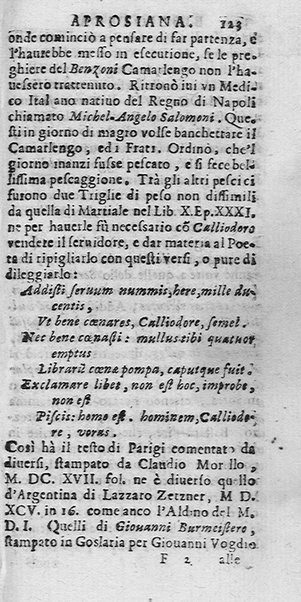 APROSIANA. 123
onde cominciò a pensare di far partenza, e
l'haurebbe messo in esecutione, se le pre-
ghiere del Benzoni Camarlengo non l'ha-
uessero trattenuto. Ritrouò iui vn Medi-
co Ital ano natiuo del Regno di Napoli
chiamato Michel-Angelo Salomoni. Que-
sti in giorno di magro volse banchettare il
Camarlengo, ed i Frati. Ordinò, che'l
giorno inanzi fusse pescato, e si fece bel-
lissima pescaggione. Trà gli altri pesci ci
furono due Triglie di peso non dissimili
da quella di Martiale nel Lib. X. Ep. XXXI.
ne per hauerle fù necessario cō Calliodoro
vendere il seruidore, e dar materia al Poe-
ta di ripigliarlo con questi versi, o pure di
dileggiarlo:
Addisti seruum nummis, here, mille du-
centis,
Vt bene cœnares, Calliodore, semel.
Nec bene cœnasti: mullus tibi quatuor
emptus
Librarū cœnæ pompa, caputque fuit.
Exclamare libet, non est hoc, improbe,
non est
Piscis: homo est. hominem, Calliodo-
re, voras.
Così hà il testo di Parigi comentato da
diuersi, stampato da Claudio Mor llo,
M. DC. XVII. fol. ne è diuerso quello
d'Argentina di Lazzaro Zetzner, M D.
XCV. in 16. come anco l'Aldino del M.
D. I. Quelli di Giouanni Burmeistero,
stampato in Goslaria per Giouanni Vogdio
F 2 alle